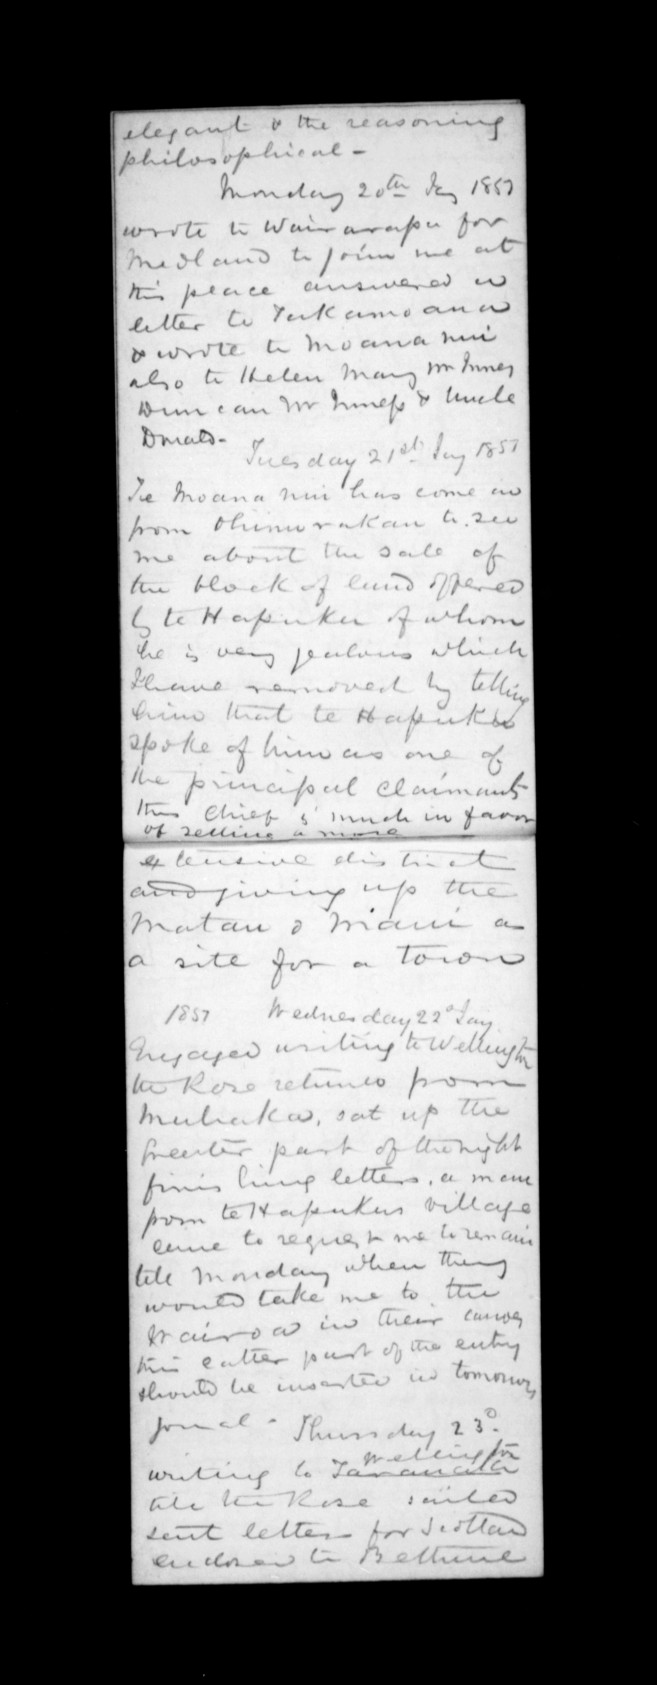 elegant & the reasoning
philosophical -
Monday 20th Jay 1851
wrote to Wairarapa for
Medland to join me at
this place answered a
letter to Tukamoana
& wrote to Moananui
also to Helen Mary Mr Innes
Duncan Mr Inness & Uncle
Donald -
Tuesday 21st Jay 1851
Te Moananui has come in
from to see
me about the sale of
the block of land offered
by te Hapuku of whom
he is very jealous which
I have removed by telling
him that te Hapuku
spoke of him as one of
the principal claimants
this Chief is much in favor
of selling a more
extensive district
and giving up the
Matau o Maui as
a site for a town
1851 Wednesday 22d Jay
Engaged writing to Wellington
the Rose returned from
Muhaka, sat up the
greater part of the night
finishing letters, a man
from te Hapukus village
came to request me to remain
till Monday when they
would take me to the
Wairoa in their canoes
this latter part of the entry
should be inserted in tomorrows
journal - Thursday 23d.
Wellington
writing to Taranaki
till the Rose sailed
sent letters for Scotland
enclosed to Bethune